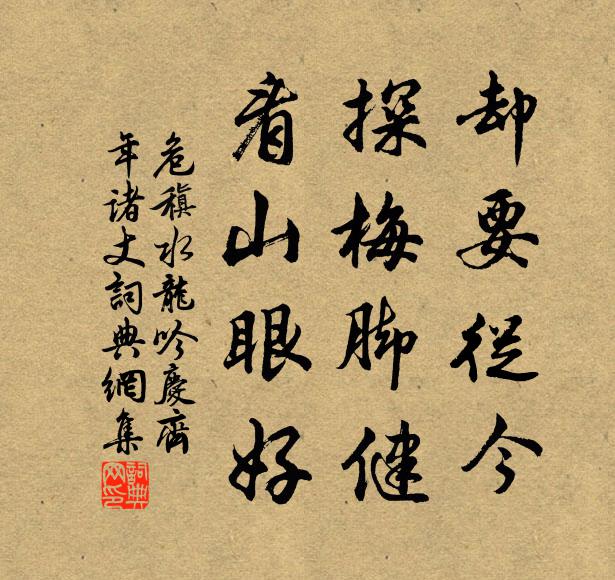 却要從今
探梅脚健
看山眼好
危稹水龍吟慶齊
年諸丈詞典網集
詞典
网印